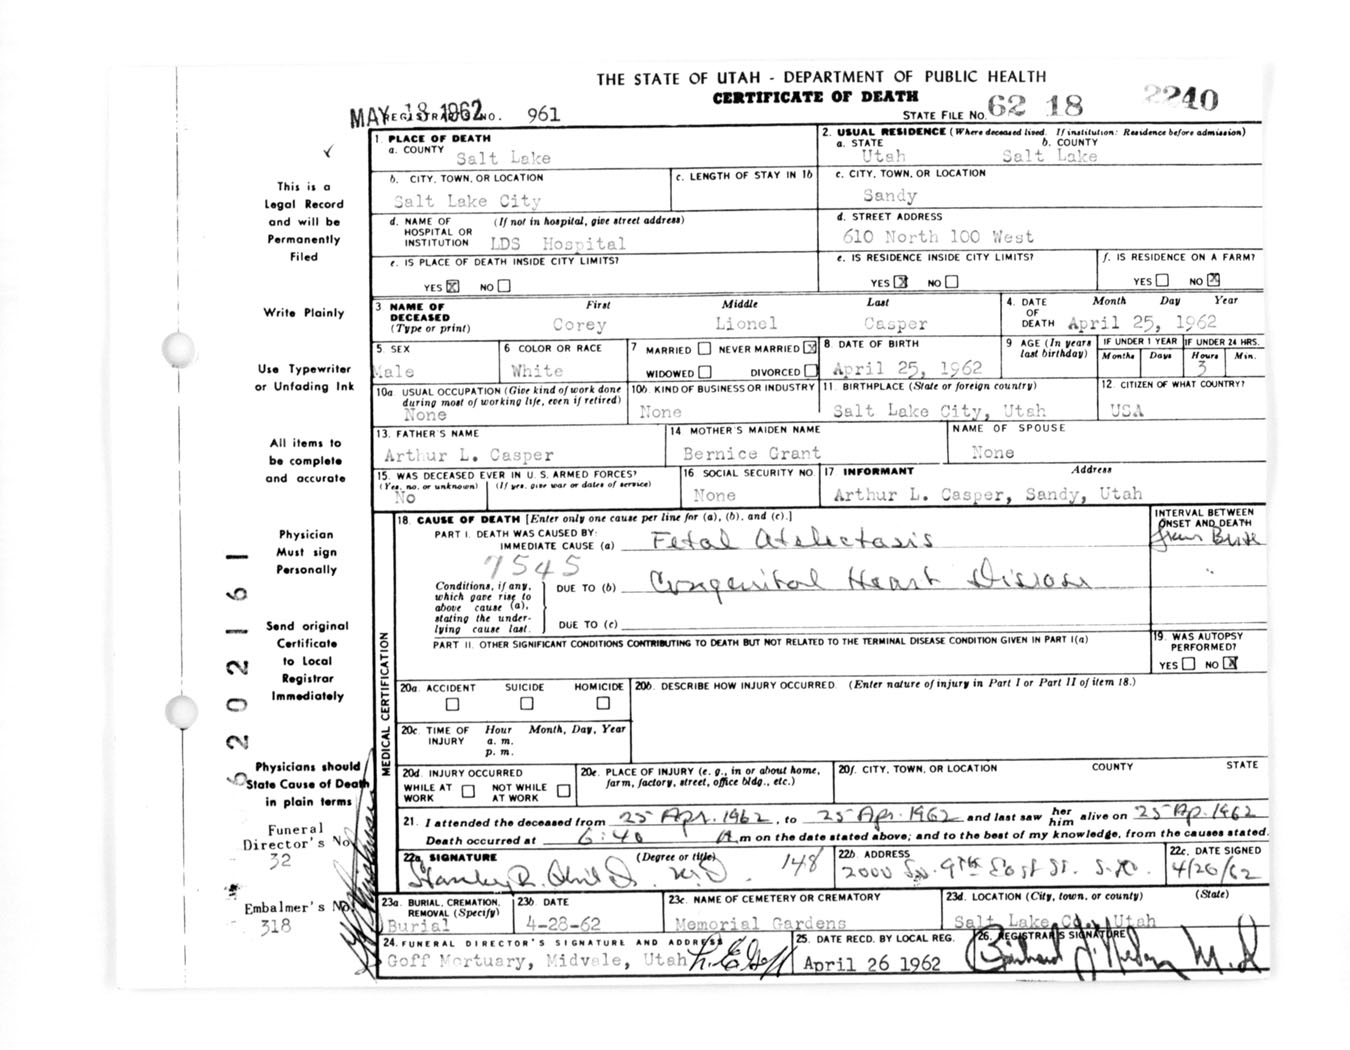 THE STATE OF UTAH - DEPARTMENT OF PUBLIC HEALTH
CERTIFICATE OF DEATH
MAY 18 1962
REGISTRAR'S NO. 961
STATE FILE No. 62 18 2240
This is a
Legal Record
and will be
Permanently
Filed
Write Plainly
Use Typewriter
or Unfading Ink
All items to
be complete
and accurate
Physician
Must sign
Personally
Send original
Certificate
to Local
Registrar
Immediately
Physicians should
State Cause of Death
in plain terms
Funeral
Director's No.
32
Embalmer's No.
318
5202161
1. PLACE OF DEATH
a. COUNTY Salt Lake
b. CITY, TOWN, OR LOCATION
Salt Lake City
c. LENGTH OF STAY IN 1b
d. NAME OF (If not in hospital, give street address)
HOSPITAL OR
INSTITUTION LDS Hospital
e. IS PLACE OF DEATH INSIDE CITY LIMITS?
YES X NO
2. USUAL RESIDENCE (Where deceased lived. If institution: Residence before admission)
a. STATE b. COUNTY
Utah Salt Lake
c. CITY, TOWN, OR LOCATION
Sandy
d. STREET ADDRESS
610 North 100 West
e. IS RESIDENCE INSIDE CITY LIMITS?
YES X NO
f. IS RESIDENCE ON A FARM?
YES NO X
3 NAME OF DECEASED (Type or print)
First Middle Last
Corey Lionel Casper
4. DATE OF DEATH Month Day Year
April 25, 1962
5. SEX
Male
6 COLOR OR RACE
White
7 MARRIED NEVER MARRIED X
WIDOWED DIVORCED
8. DATE OF BIRTH
April 25, 1962
9 AGE (In years last birthday)
IF UNDER 1 YEAR IF UNDER 24 HRS.
Months Days Hours Min.
3
10a USUAL OCCUPATION (Give kind of work done
during most of working life, even if retired)
None
10b. KIND OF BUSINESS OR INDUSTRY
None
11. BIRTHPLACE (State or foreign country)
Salt Lake City, Utah
12. CITIZEN OF WHAT COUNTRY?
USA
13. FATHER'S NAME
Arthur L. Casper
14 MOTHER'S MAIDEN NAME
Bernice Grant
NAME OF SPOUSE
None
15. WAS DECEASED EVER IN U. S. ARMED FORCES?
(Yes, no, or unknown) (If yes, give war or dates of service)
No
16 SOCIAL SECURITY NO.
None
17 INFORMANT Address
Arthur L. Casper, Sandy, Utah
MEDICAL CERTIFICATION
18. CAUSE OF DEATH [Enter only one cause per line for (a), (b), and (c).]
PART I. DEATH WAS CAUSED BY:
IMMEDIATE CAUSE (a) Fetal Atelectasis
7545
Conditions, if any,
which gave rise to
above cause (a),
stating the under-
lying cause last.
DUE TO (b) Congenital Heart Disease
DUE TO (c)
INTERVAL BETWEEN
ONSET AND DEATH
from Birth
"
PART II. OTHER SIGNIFICANT CONDITIONS CONTRIBUTING TO DEATH BUT NOT RELATED TO THE TERMINAL DISEASE CONDITION GIVEN IN PART I(a)
19. WAS AUTOPSY
PERFORMED?
YES NO X
20a. ACCIDENT SUICIDE HOMICIDE
20b. DESCRIBE HOW INJURY OCCURRED. (Enter nature of injury in Part I or Part II of item 18.)
20c. TIME OF INJURY Hour Month, Day, Year
a. m.
p. m.
20d. INJURY OCCURRED
WHILE AT WORK NOT WHILE AT WORK
20e. PLACE OF INJURY (e. g., in or about home,
farm, factory, street, office bldg., etc.)
20f. CITY, TOWN, OR LOCATION COUNTY STATE
21. I attended the deceased from 25 Apr. 1962, to 25 Apr. 1962 and last saw her him alive on 25 Ap. 1962
Death occurred at 6:40 A.m on the date stated above; and to the best of my knowledge, from the causes stated.
22a. SIGNATURE (Degree or title)
Stanley R. M.D. 148
22b. ADDRESS
2000 So. 9th East St. S.L.C.
22c. DATE SIGNED
4/26/62
23a. BURIAL, CREMATION,
REMOVAL (Specify)
Burial
23b. DATE
4-28-62
23c. NAME OF CEMETERY OR CREMATORY
Memorial Gardens
23d. LOCATION (City, town, or county) (State)
Salt Lake Co., Utah
24. FUNERAL DIRECTOR'S SIGNATURE AND ADDRESS
Goff Mortuary, Midvale, Utah
25. DATE RECD. BY LOCAL REG.
April 26 1962
26. REGISTRAR'S SIGNATURE
M.D.